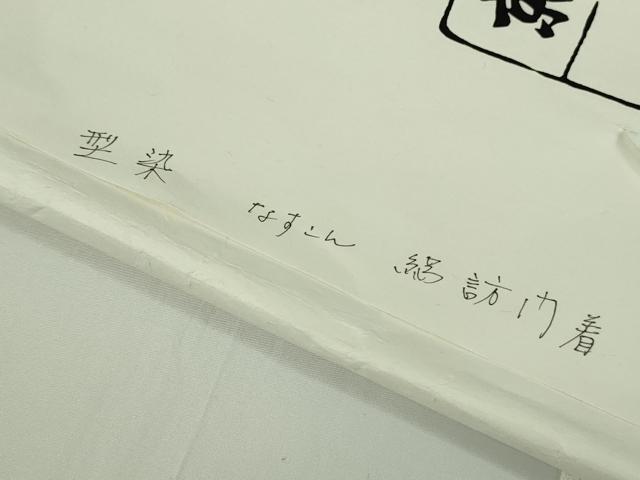 型染 なすこん 絽訪門着